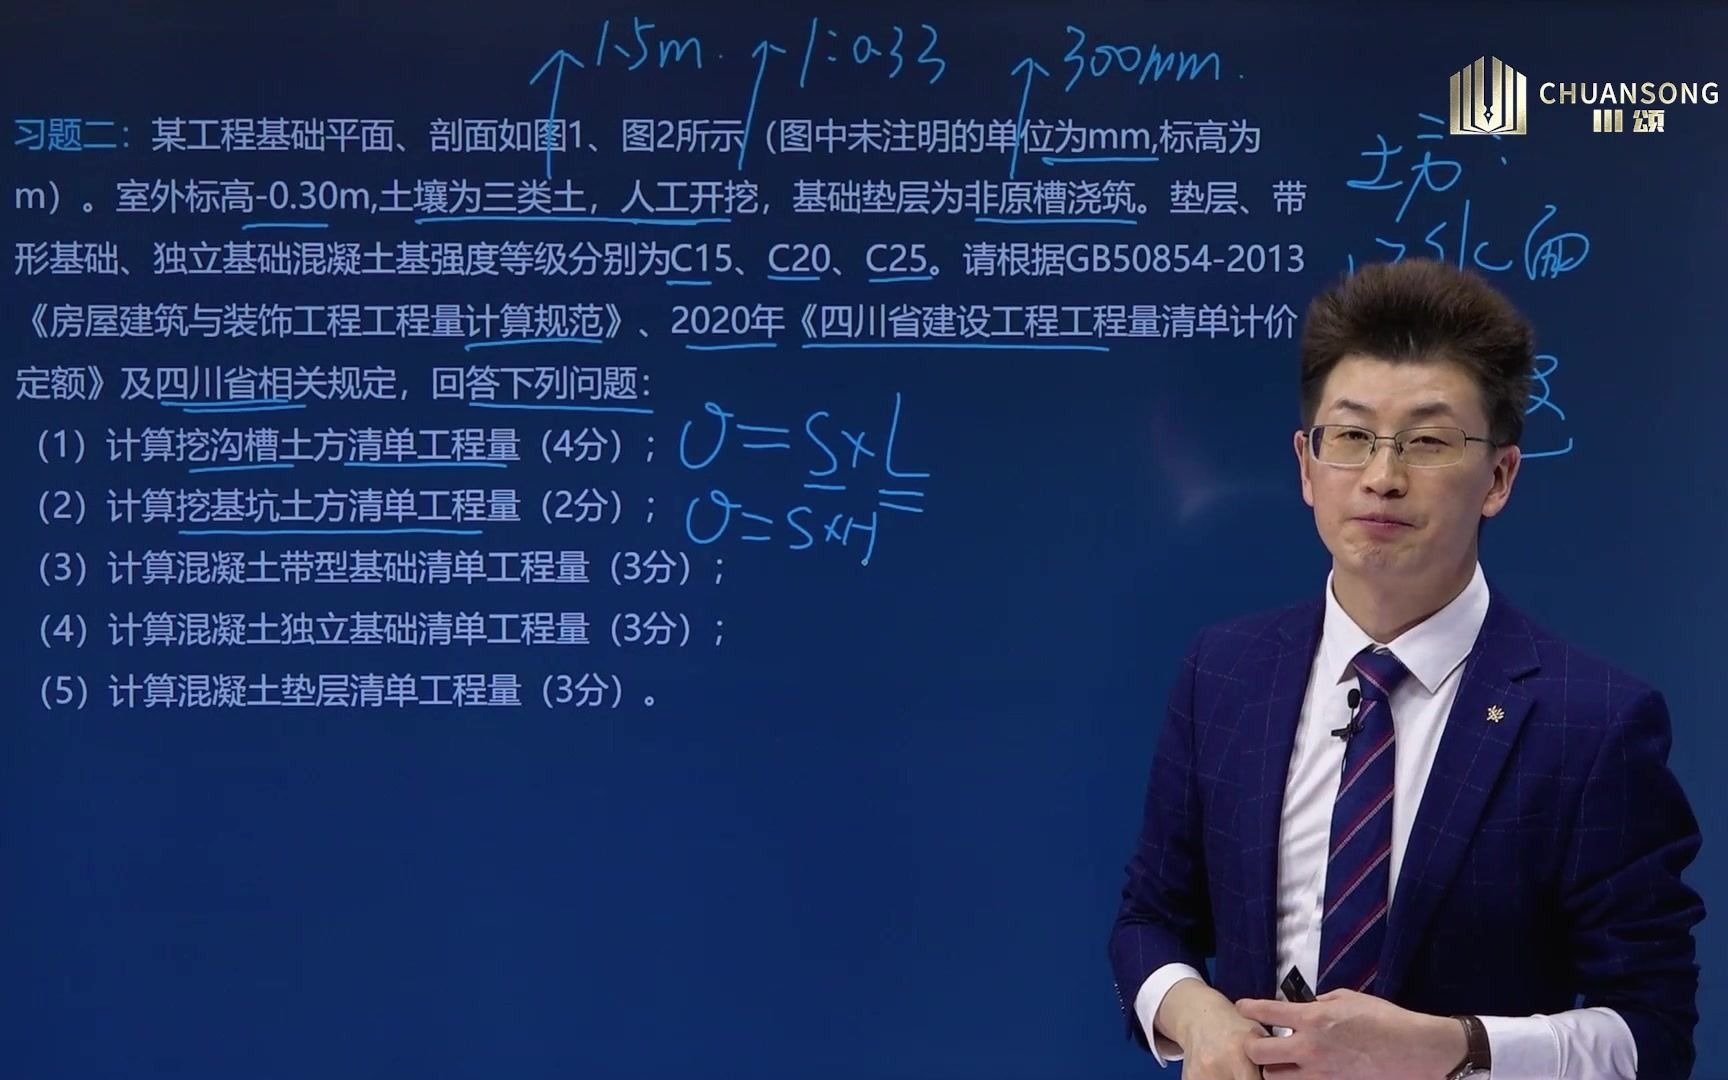 1.5m. 1:0.33 300mm.
CHUANSONG
川颂
习题二：某工程基础平面、剖面如图1、图2所示（图中未注明的单位为mm,标高为
m）。室外标高-0.30m,土壤为三类土，人工开挖，基础垫层为非原槽浇筑。垫层、带
形基础、独立基础混凝土基强度等级分别为C15、C20、C25。请根据GB50854-2013
《房屋建筑与装饰工程工程量计算规范》、2020年《四川省建设工程工程量清单计价
定额》及四川省相关规定，回答下列问题：
（1）计算挖沟槽土方清单工程量（4分）； V=S×L
（2）计算挖基坑土方清单工程量（2分）； V=S×H
（3）计算混凝土带型基础清单工程量（3分）；
（4）计算混凝土独立基础清单工程量（3分）；
（5）计算混凝土垫层清单工程量（3分）。